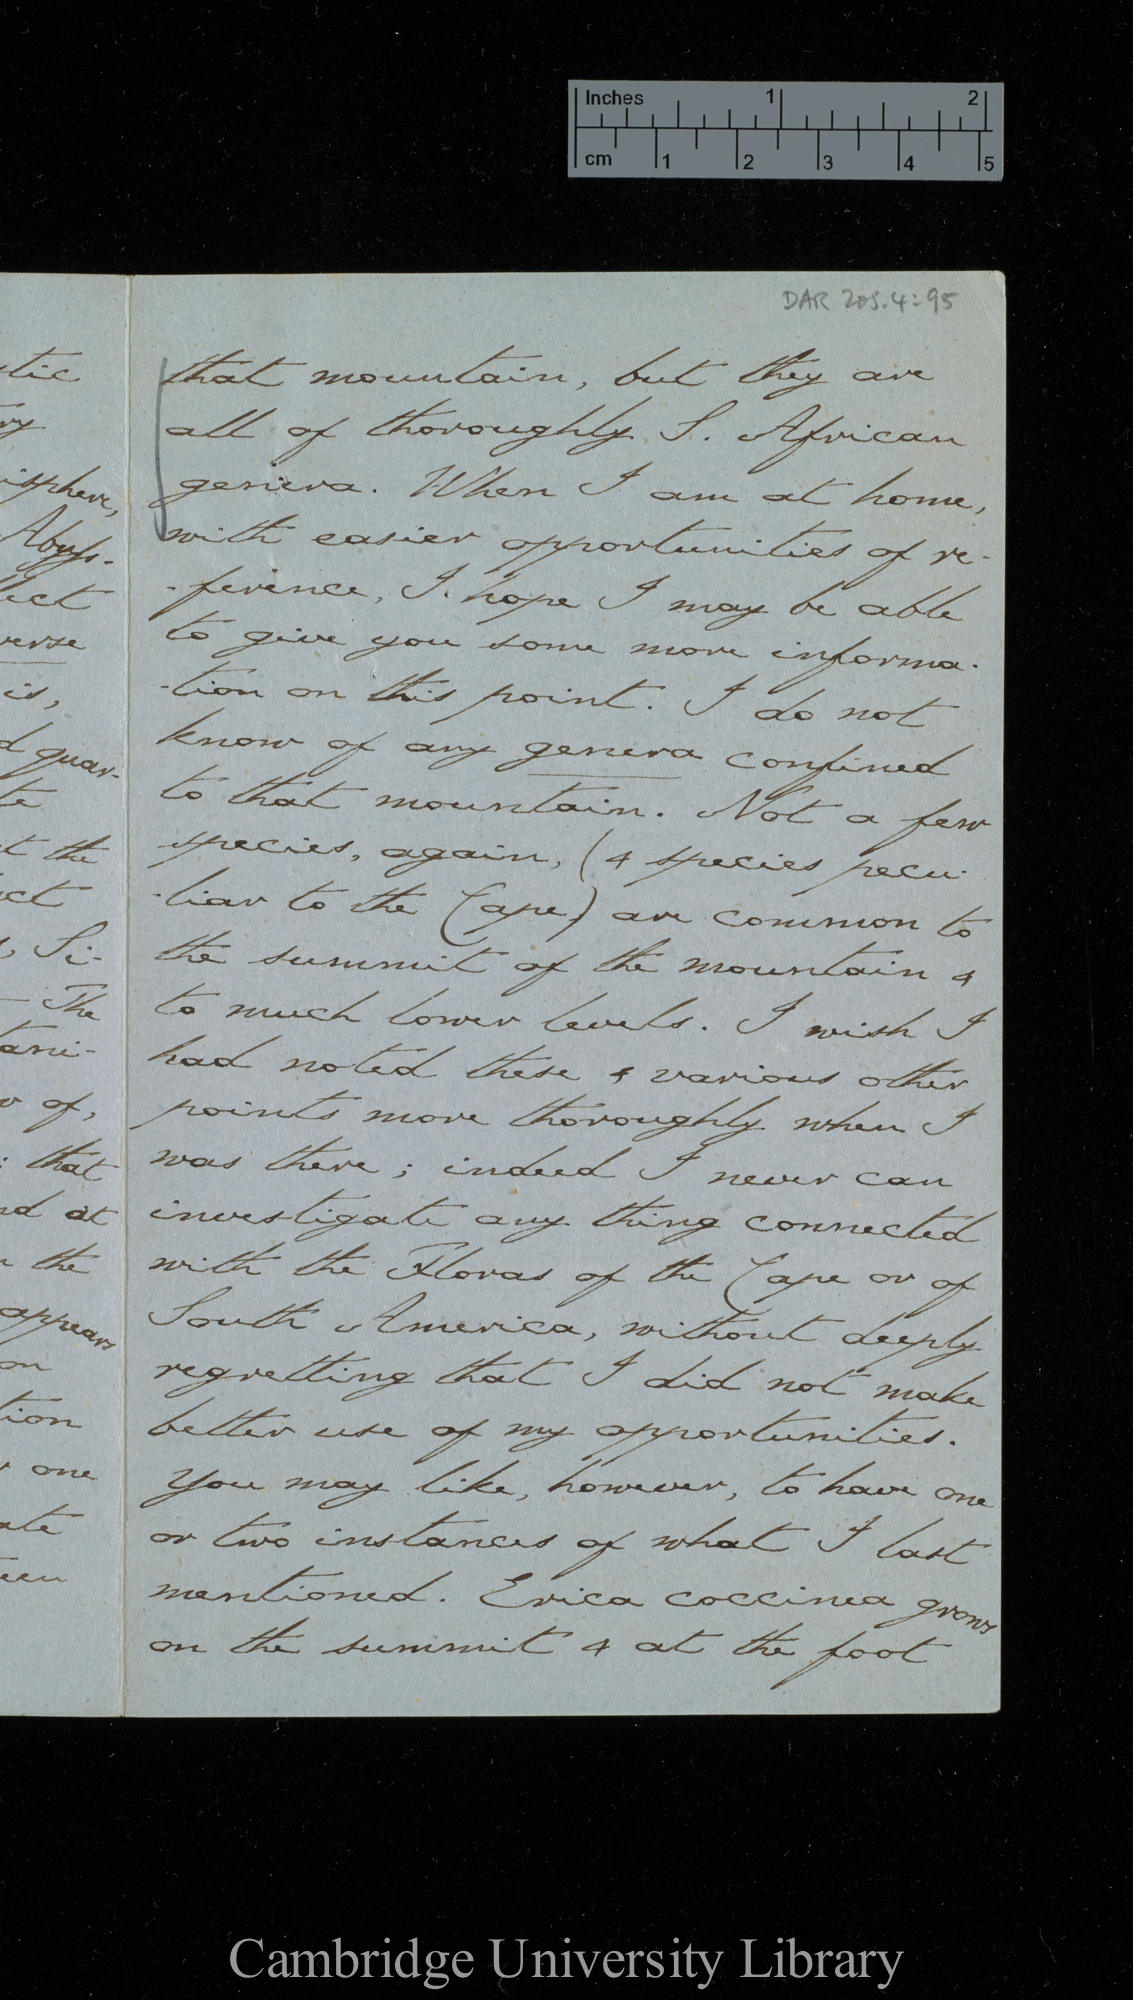 Inches 1 2
cm 1 2 3 4 5
DAR 205.4:95
that mountain, but they are
all of thoroughly S. African
genera. When I am at home,
with easier opportunities of re-
-ference, I hope I may be able
to give you some more informa-
-tion on this point. I do not
know of any genera confined
to that mountain. Not a few
species, again, (& species pecu-
-liar to the Cape,) are common to
the summit of the mountain &
to much lower levels. I wish I
had noted these & various other
points more thoroughly when I
was there; indeed I never can
investigate any thing connected
with the Floras of the Cape or of
South America, without deeply
regretting that I did not make
better use of my opportunities.
You may like, however, to have one
or two instances of what I last
mentioned. Erica coccinea grows
on the summit & at the foot
Cambridge University Library